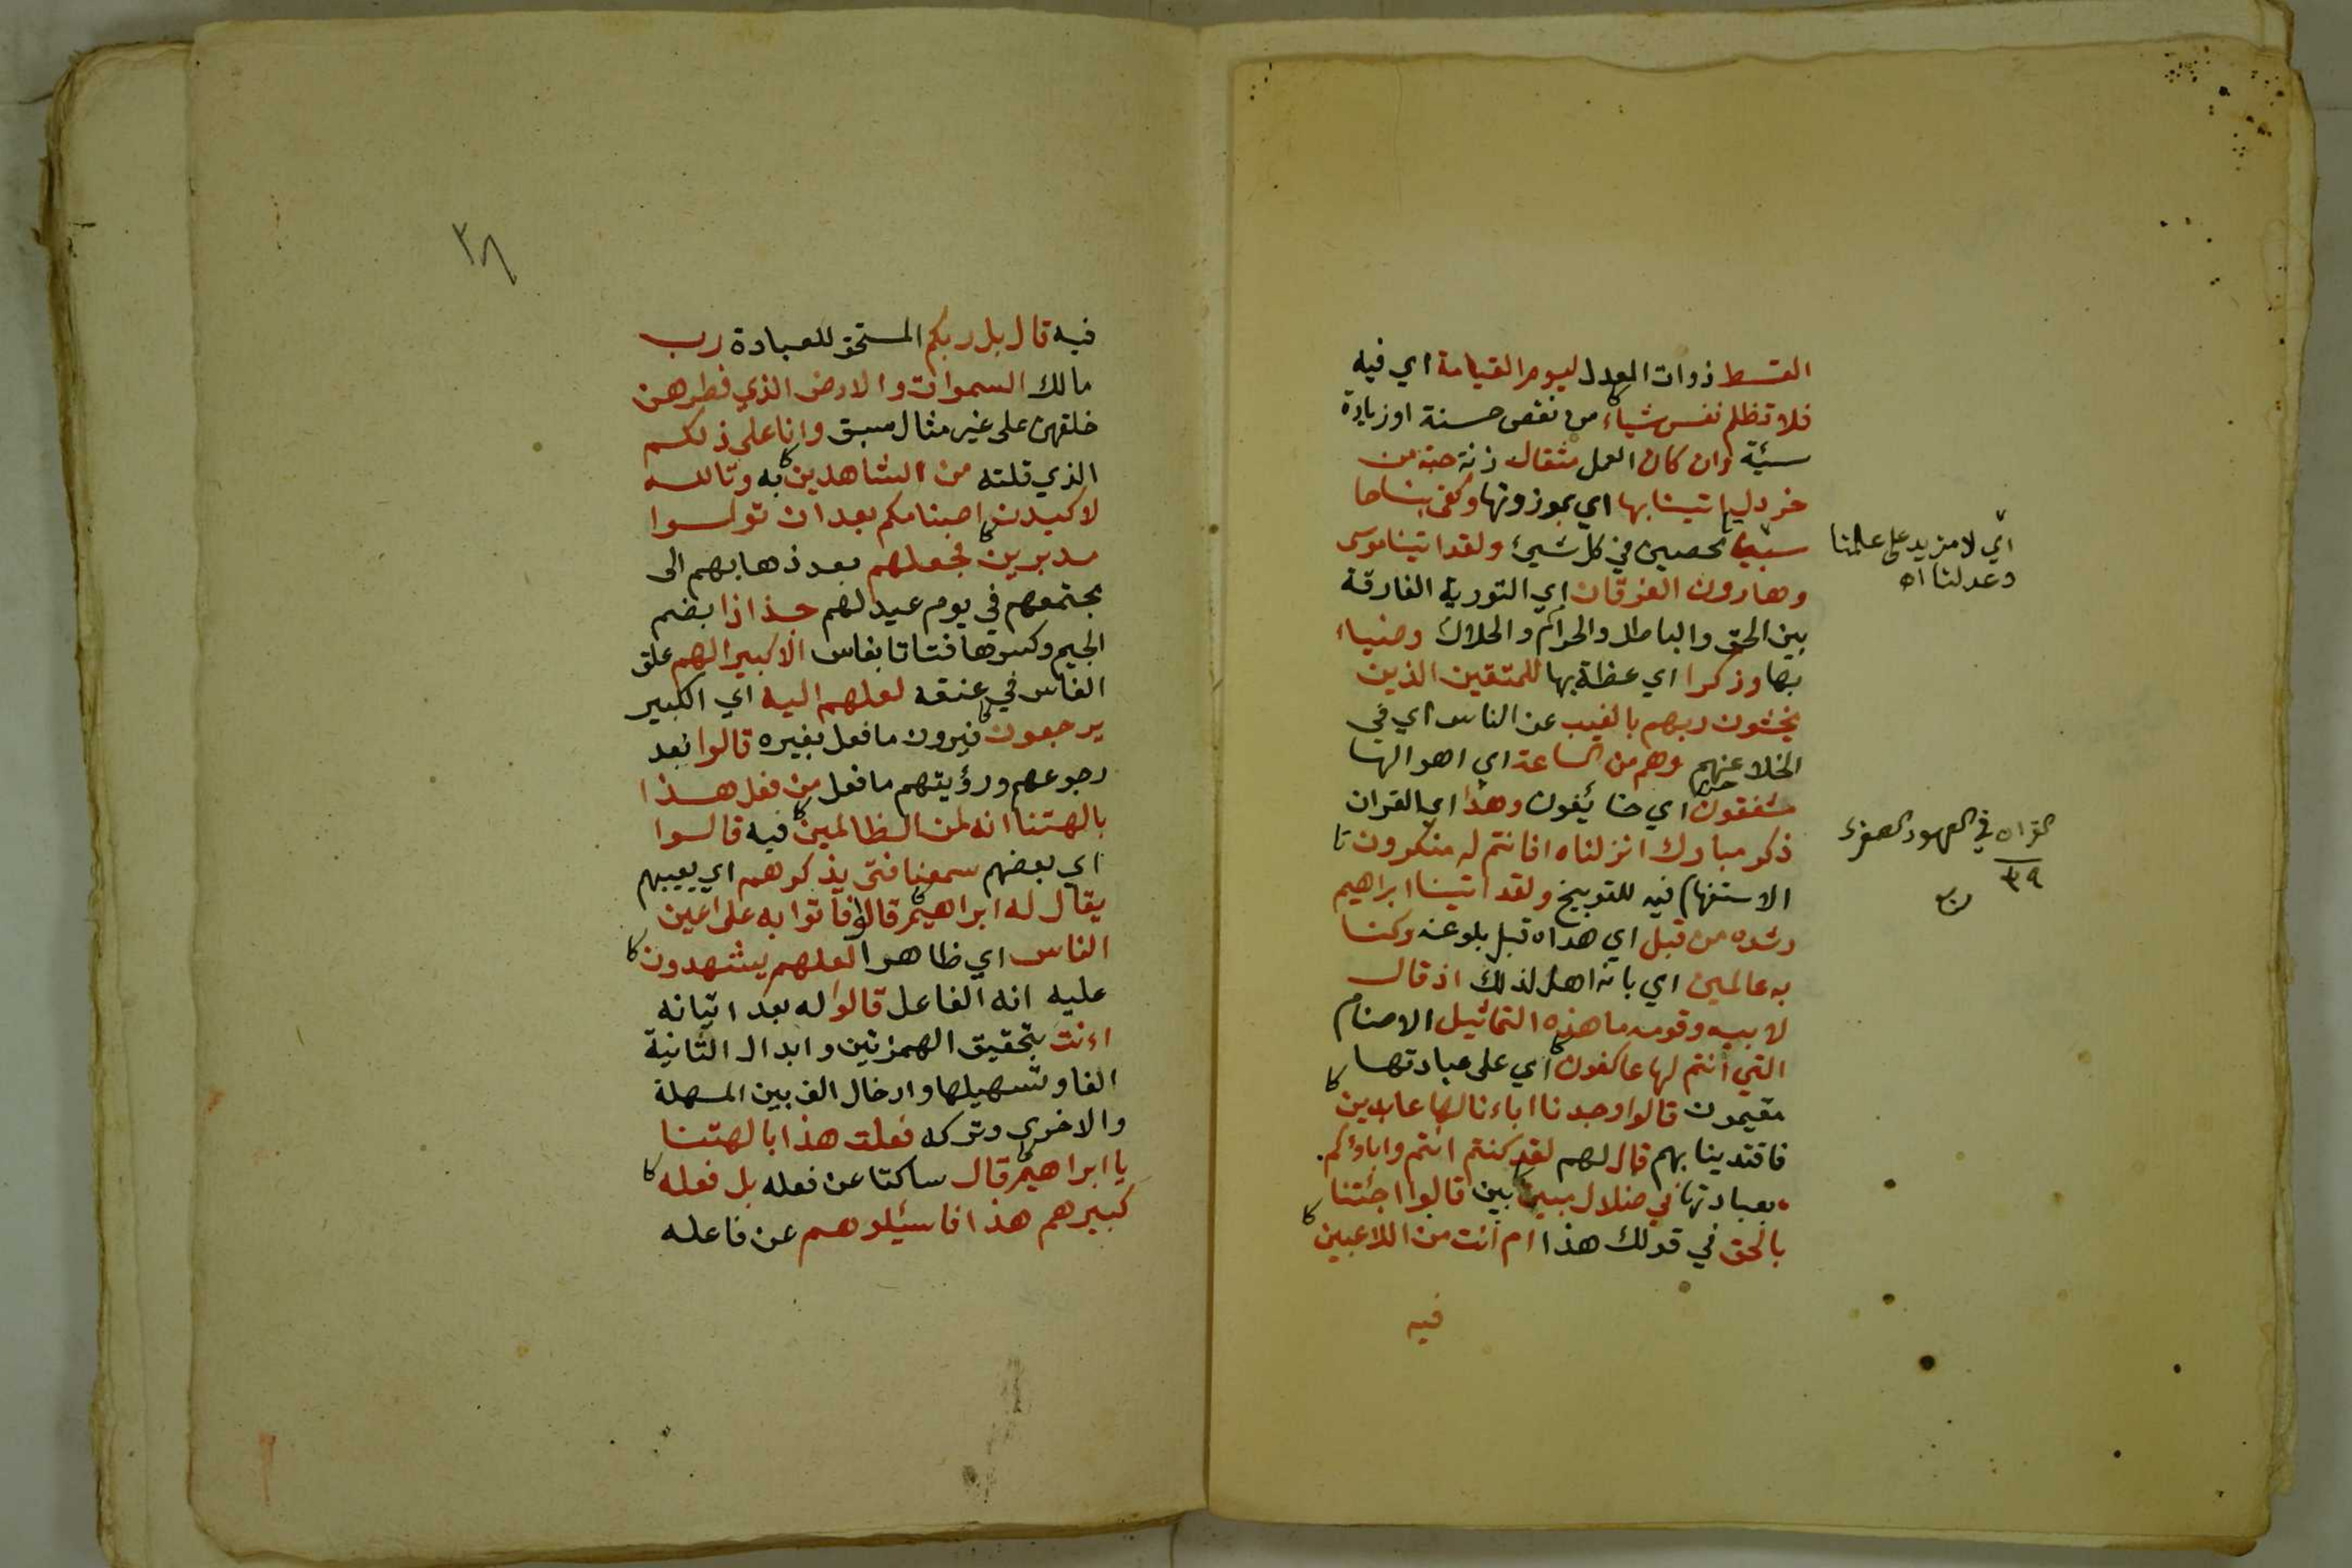 القسط ذوات العدل ليوم القيامة اي فيه
فلا تظلم نفس شياء من نقص حسنة او زيادة
سيئة وان كان العمل مثقال زنة حبة من
خردل اتينا بها اي بموزونها وكفى بنا حا
سبين محصين في كل شيئ ولقد اتينا موسى
اي لا مزيد على علمنا
وعدلنا اه
وهارون الفرقان اي التورية الفارقة
بين الحق والباطل والحرام والحلال وضياء
بها وذكرا اي عظة بها للمتقين الذين
يخشون ربهم بالغيب عن الناس اي في
الخلا عنهم وهم من الساعة اي اهوالها
مشفقون اي خائفون وهذا اي القران
ذكر مبارك انزلناه افانتم له منكرون
الاستفهام فيه للتوبيخ ولقد اتينا ابراهيم
رشده من قبل اي هداه قبل بلوغه وكنا
به عالمين اي بانه اهل لذلك اذ قال
لابيه وقومه ما هذه التماثيل الاصنام
التي انتم لها عاكفون اي على عبادتها
مقيمون قالوا وجدنا اباءنا لها عابدين
فاقتدينا بهم قال لهم لقد كنتم انتم واباؤكم
بعبادتها في ضلال مبين بين قالوا اجئتنا
بالحق في قولك هذا ام انت من اللاعبين
فيه
٣٨
فيه قال بل ربكم المستحق للعبادة رب
مالك السموات والارض الذي فطرهن
خلقهن على غير مثال سبق وانا على ذلكم
الذي قلته من الشاهدين به وتالله
لاكيدن اصنامكم بعد ان تولوا
مدبرين فجعلهم بعد ذهابهم الى
مجتمعهم في يوم عيد لهم جذاذا بضم
الجيم وكسرها فتاتا بفاس الا كبيرا لهم علق
الفاس في عنقه لعلهم اليه اي الكبير
يرجعون فيرون ما فعل بغيره قالوا بعد
رجوعهم ورؤيتهم ما فعل من فعل هذا
بالهتنا انه لمن الظالمين فيه قالوا
اي بعضهم سمعنا فتى يذكرهم اي يعيبهم
يقال له ابراهيم قالوا فاتوا به على اعين
الناس اي ظاهرا لعلهم يشهدون
عليه انه الفاعل قالوا له بعد اتيانه
اءنت بتحقيق الهمزتين وابدال الثانية
الفا وتسهيلها وادخال الف بين المسهلة
والاخرى وتركه فعلت هذا بالهتنا
يا ابراهيم قال ساكتا عن فعله بل فعله
كبيرهم هذا فاسئلوهم عن فاعله